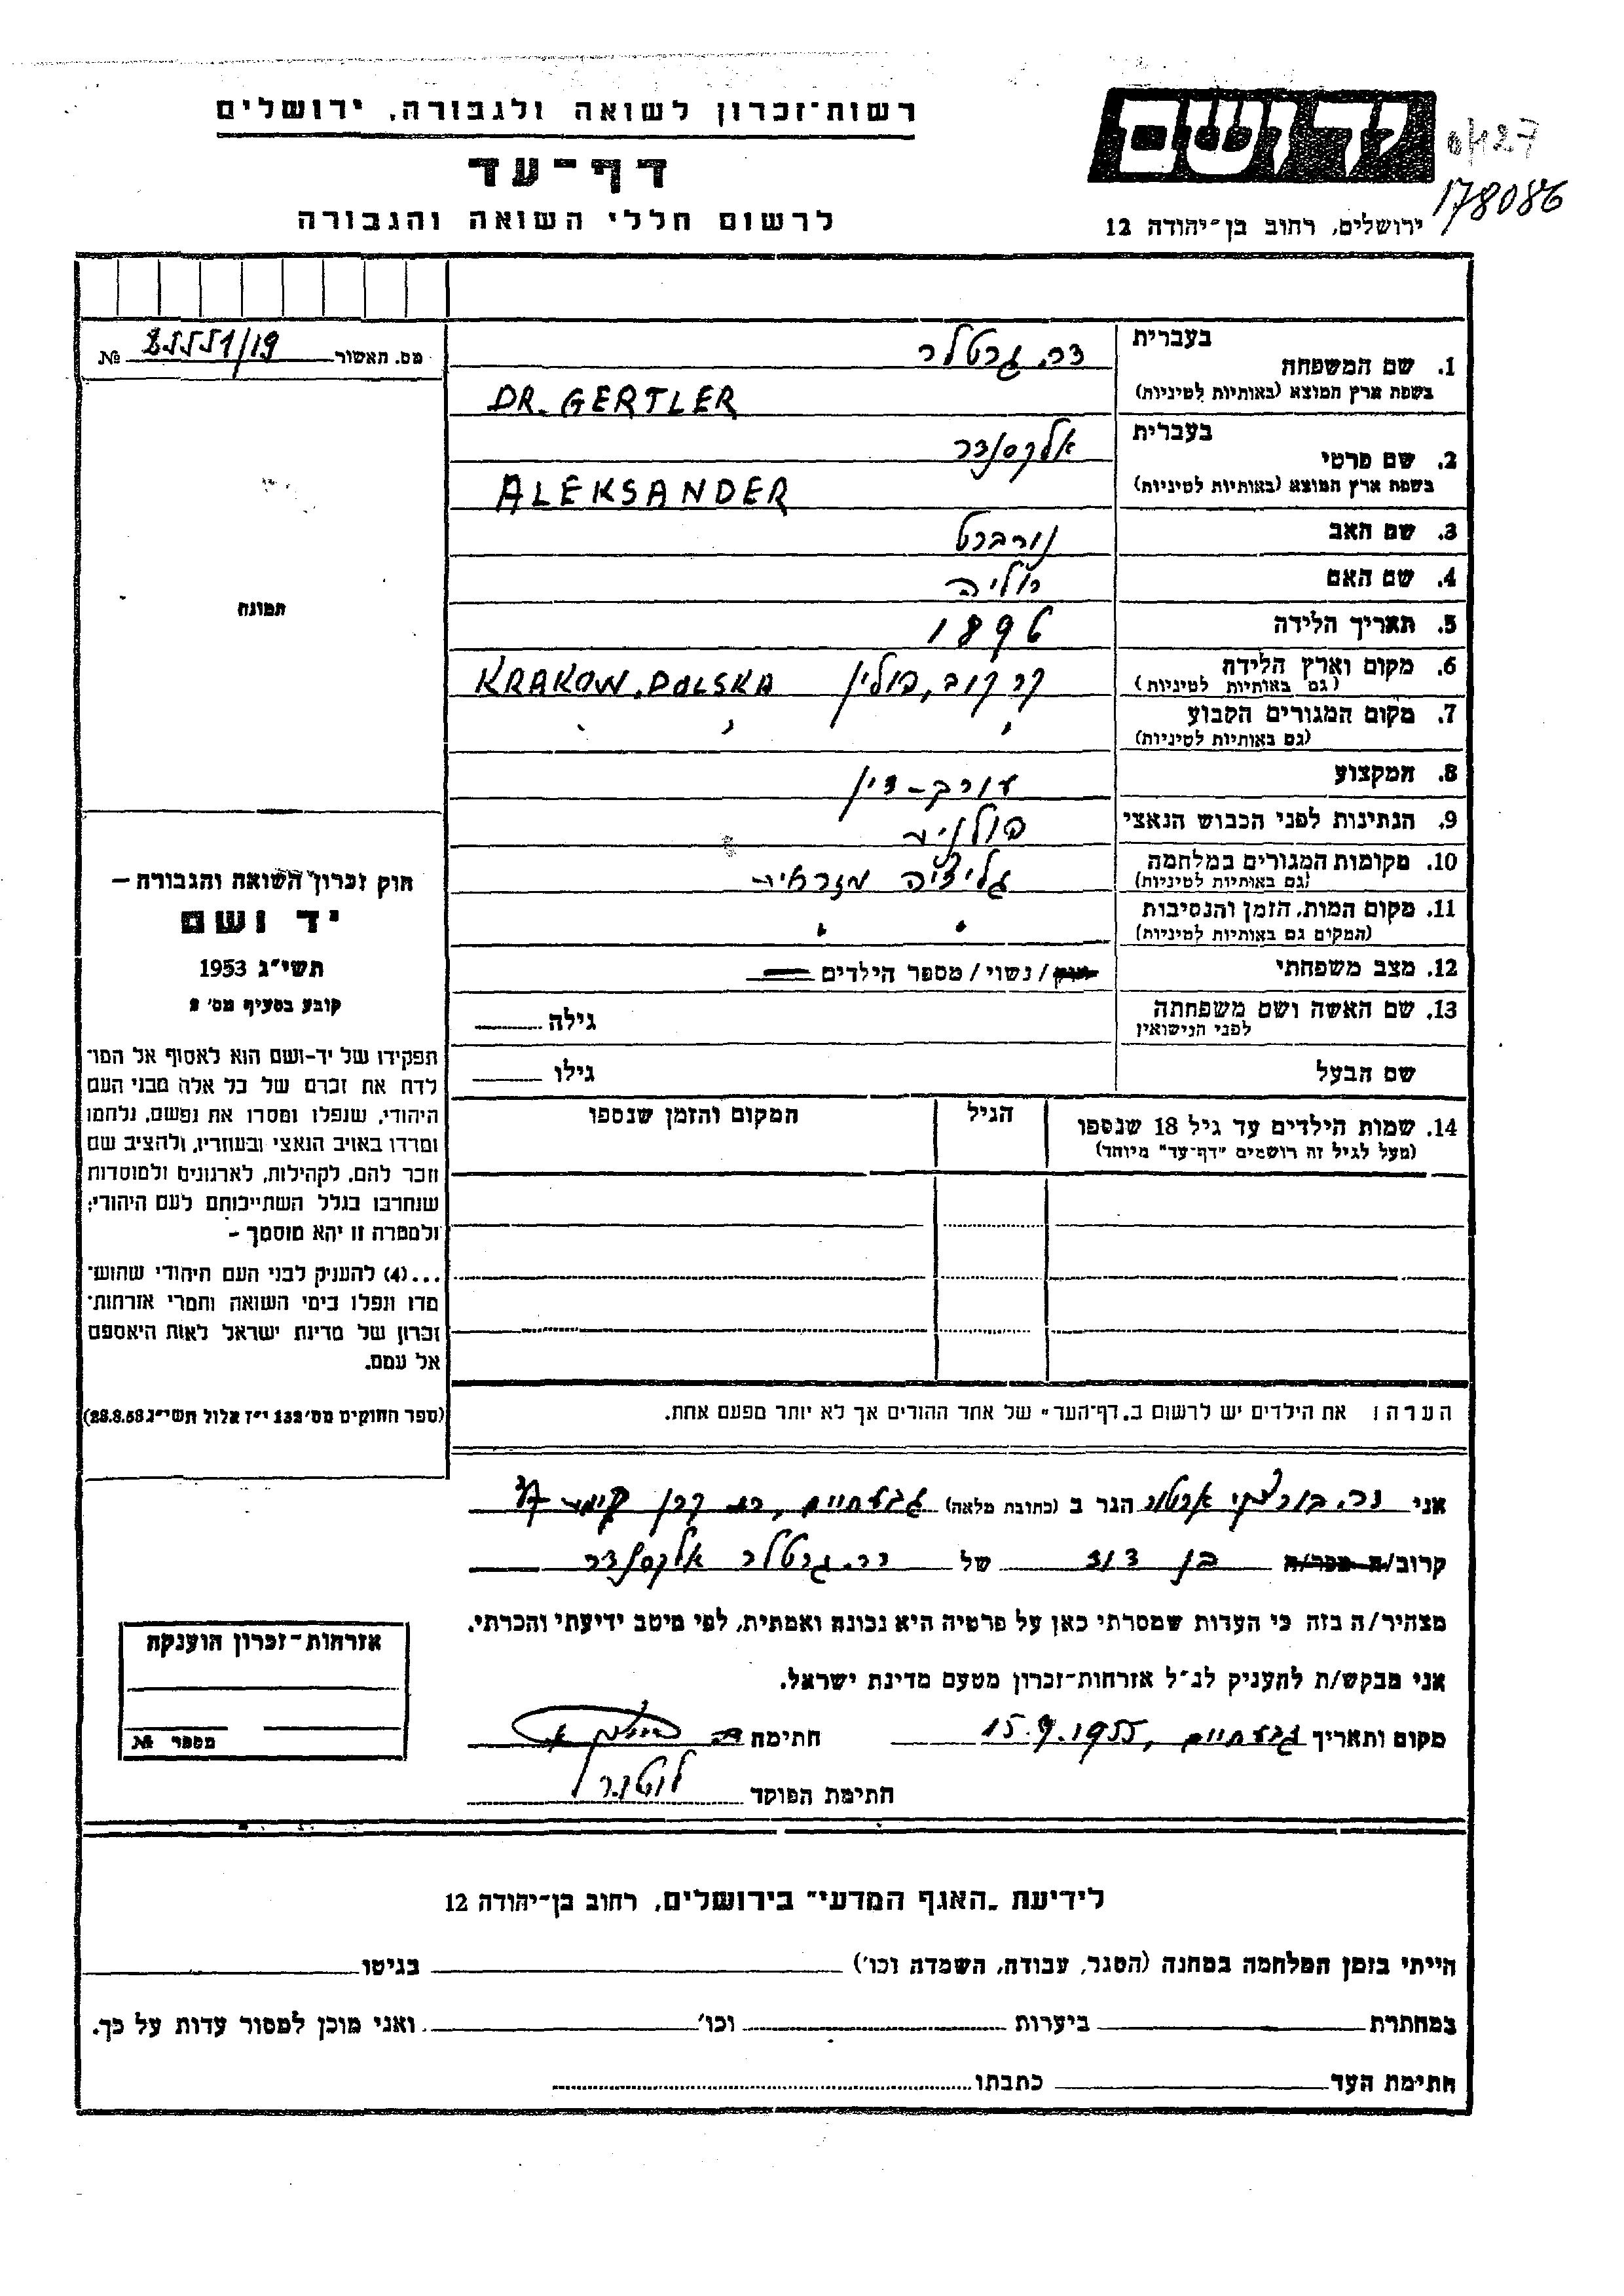 רשות־זכרון לשואה ולגבורה, ירושלים
דף־עד
לרשום חללי השואה והגבורה
יד ושם
178086
ירושלים, רחוב בן־יהודה 12
מס. תאשור №
בעברית
1. שם המשפחה
דר. גרטלר
בשפת ארץ המוצא (באותיות לטיניות)
DR. GERTLER
בעברית
2. שם פרטי
אלקסנדר
בשפת ארץ המוצא (באותיות לטיניות)
ALEKSANDER
3. שם האב נורברט
4. שם האם יוליה
5. תאריך הלידה 1896
6. מקום וארץ הלידה
(גם באותיות לטיניות)
קרקוב, פולין KRAKOW, POLSKA
7. מקום המגורים הקבוע
(גם באותיות לטיניות)
8. המקצוע עורך-דין
9. הנתינות לפני הכבוש הנאצי פולנית
10. מקומות המגורים במלחמה
(גם באותיות לטיניות)
גליציה מזרחית
11. מקום המות, הזמן והנסיבות
(המקום גם באותיות לטיניות)
12. מצב משפחתי
/ נשוי / מספר הילדים
13. שם האשה ושם משפחתה
לפני הנישואין
גילה
שם הבעל גילו
14. שמות הילדים עד גיל 18 שנספו
(מעל לגיל זה רושמים "דף־עד" מיוחד)
הגיל
המקום והזמן שנספו
הערה: את הילדים יש לרשום ב„דף־העד" של אחד ההורים אך לא יותר מפעם אחת.
תמונה
חוק זכרון השואה והגבורה —
יד ושם
תשי״ג 1953
קובע בסעיף מס׳ 2
תפקידו של יד-ושם הוא לאסוף אל המו־
לדת את זכרם של כל אלה מבני העם
היהודי, שנפלו ומסרו את נפשם, נלחמו
ומרדו באויב הנאצי ובעוזריו, ולהציב שם
וזכר להם, לקהילות, לארגונים ולמוסדות
שנחרבו בגלל השתייכותם לעם היהודי;
ולמטרה זו יהא מוסמך –
...(4) להעניק לבני העם היהודי שהוש־
מדו ונפלו בימי השואה והמרי אזרחות־
זכרון של מדינת ישראל לאות היאספם
אל עמם.
(ספר החוקים מס׳ 132 י״ז אלול תשי״ג 28.8.53)
אני הגר ב (כתובת מלאה) גבעתיים, קרן קימת
קרוב/ה מכר/ה בן דוד של דר. גרטלר אלקסנדר
מצהיר/ה בזה כי העדות שמסרתי כאן על פרטיה היא נכונה ואמתית, לפי מיטב ידיעתי והכרתי.
אני מבקש/ת להעניק לנ״ל אזרחות־זכרון מטעם מדינת ישראל.
מקום ותאריך גבעתיים, 15.9.1955 חתימה
חתימת הפוקד
אזרחות־זכרון הוענקה
מספר №
לידיעת „האגף המדעי" בירושלים, רחוב בן־יהודה 12
הייתי בזמן המלחמה במחנה (הסגר, עבודה, השמדה וכו׳) בגיטו
במחתרת ביערות וכו׳ ואני מוכן למסור עדות על כך.
חתימת העד כתבתו